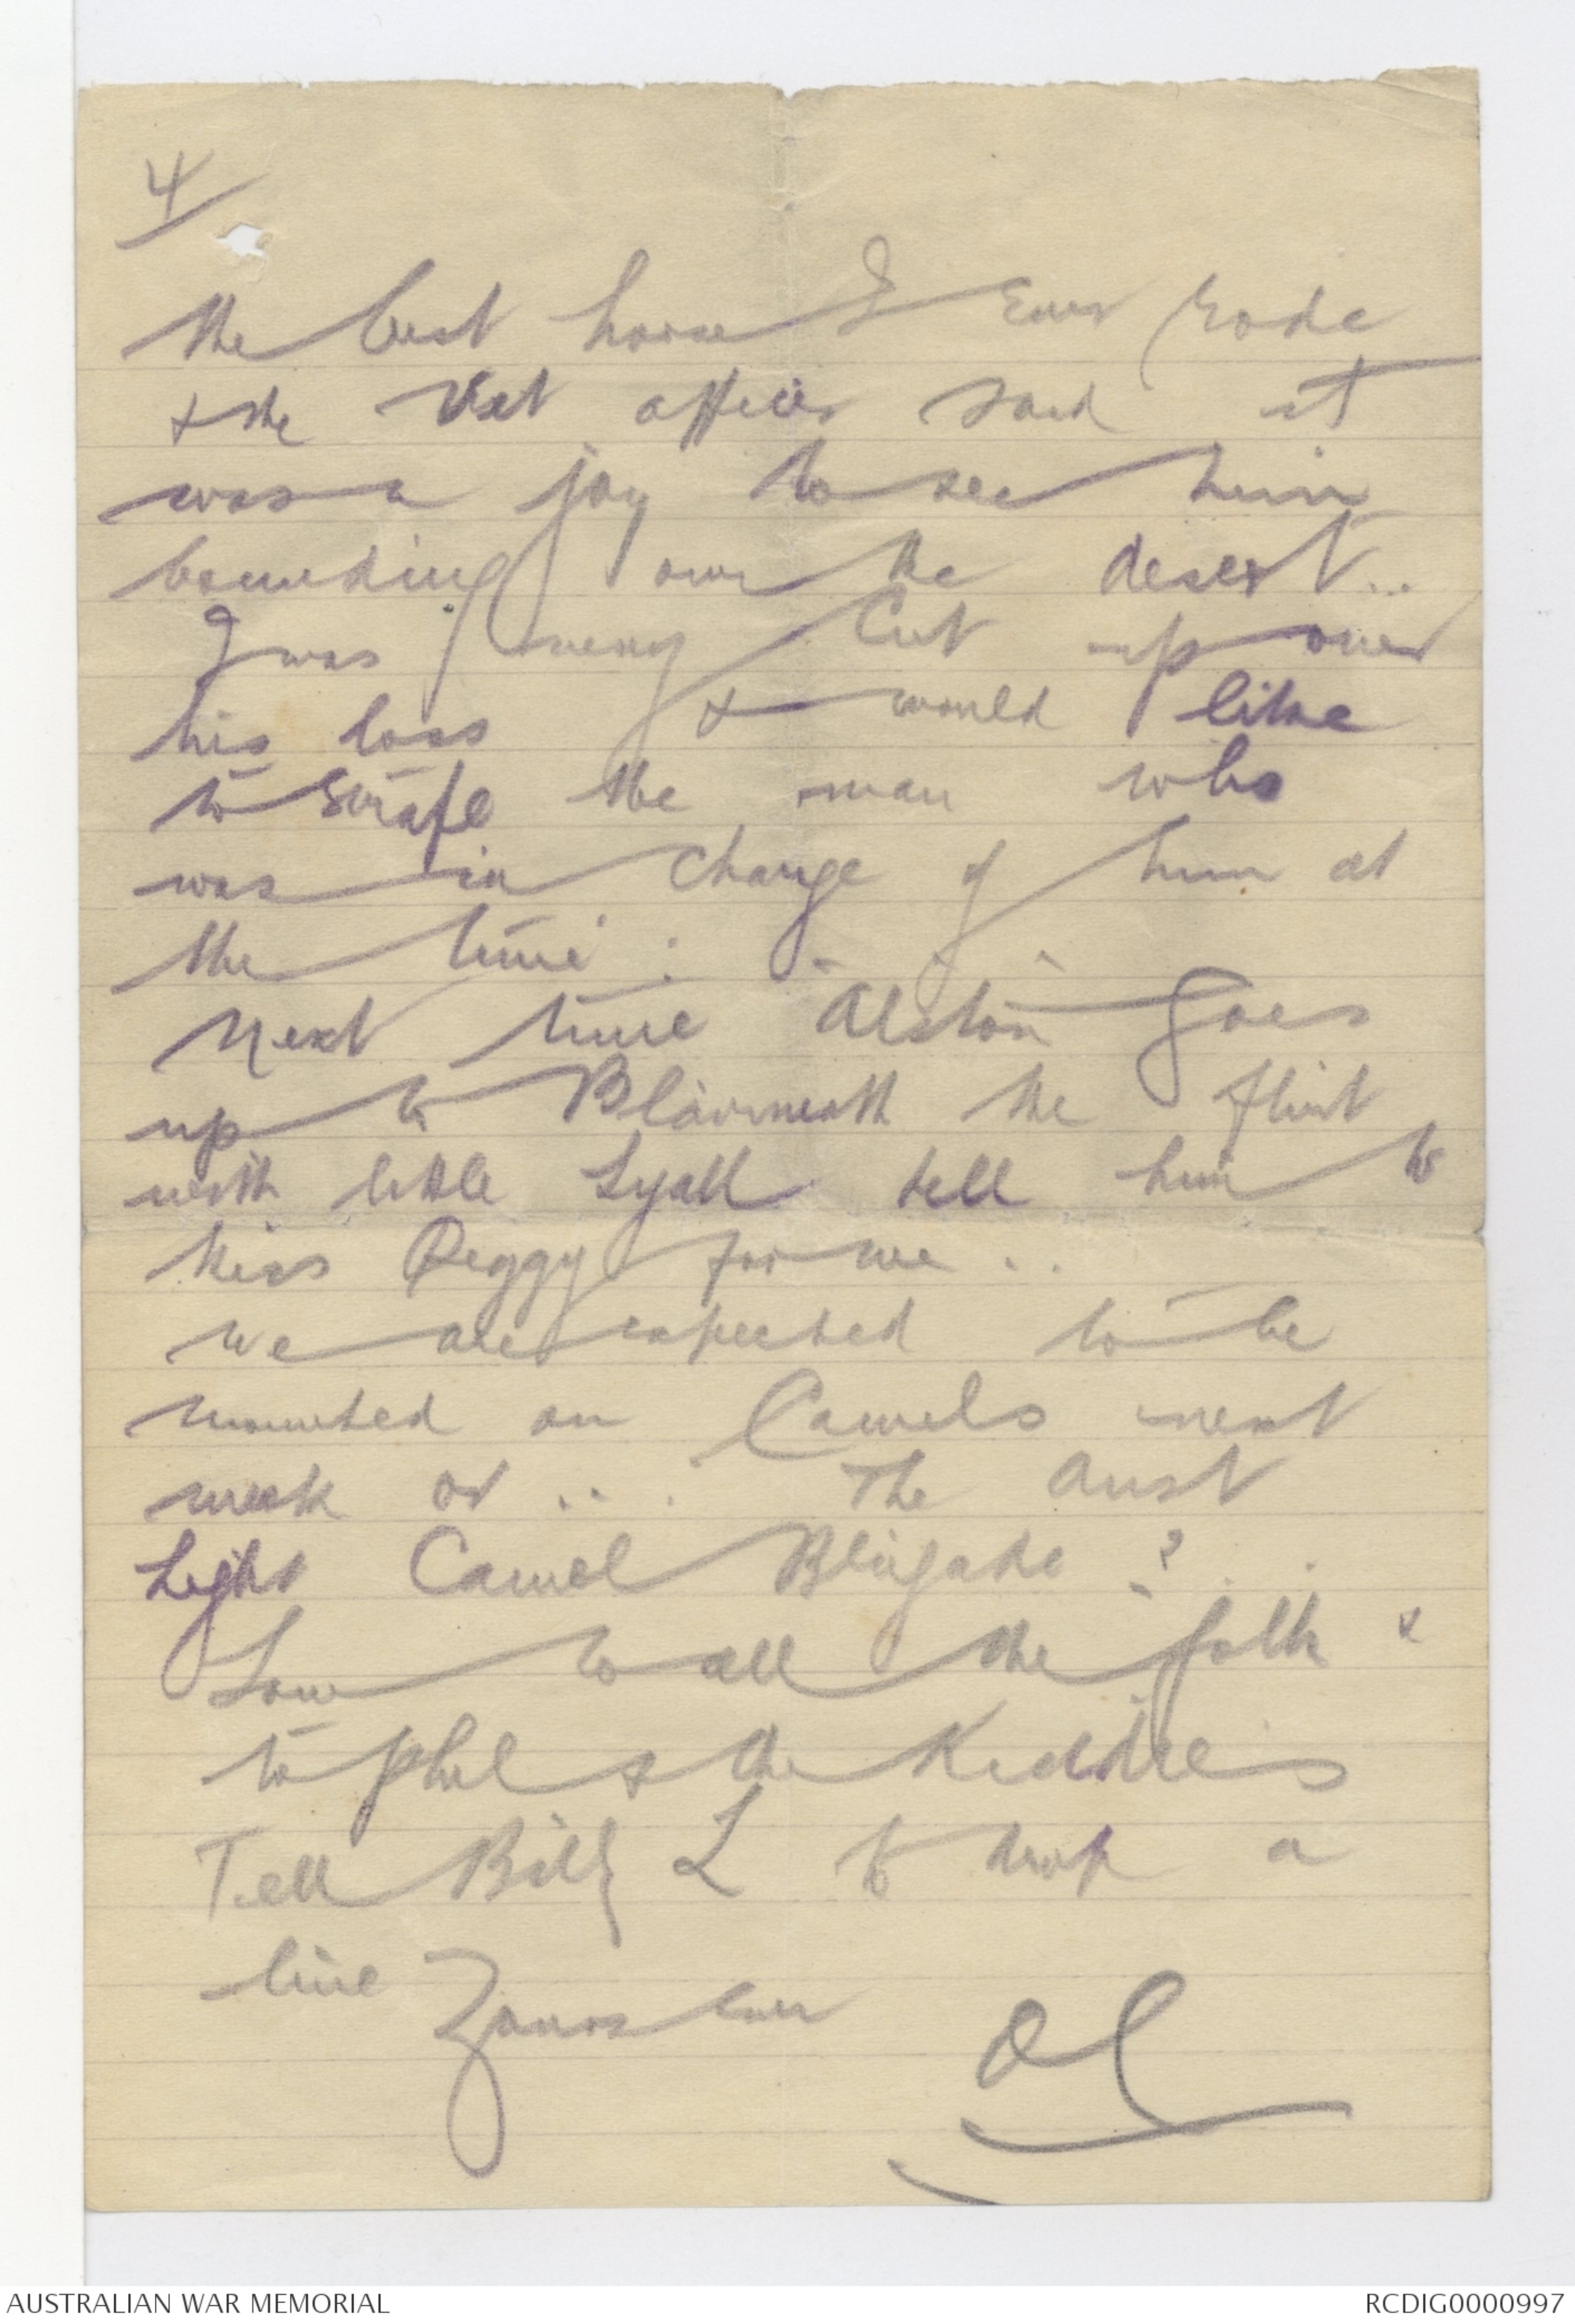 4/
the best horse I ever rode
& the Vet officer said it
was a joy to see him
bounding over the desert..
I was very cut up over
his loss & would like
to strafe the man who
was in charge of him at
the time : . . .
Next time Alston goes
up to the
with little Lyall tell him to
kiss Peggy for me ..
we are expected to be
mounted on Camels next
week or .. . The Aust
Light Camel Brigade ? . .
Love to all the folk &
to Phil & the Kiddies
Tell Bill L to drop a
line Yours ever
AUSTRALIAN WAR MEMORIAL
RCDIG0000997